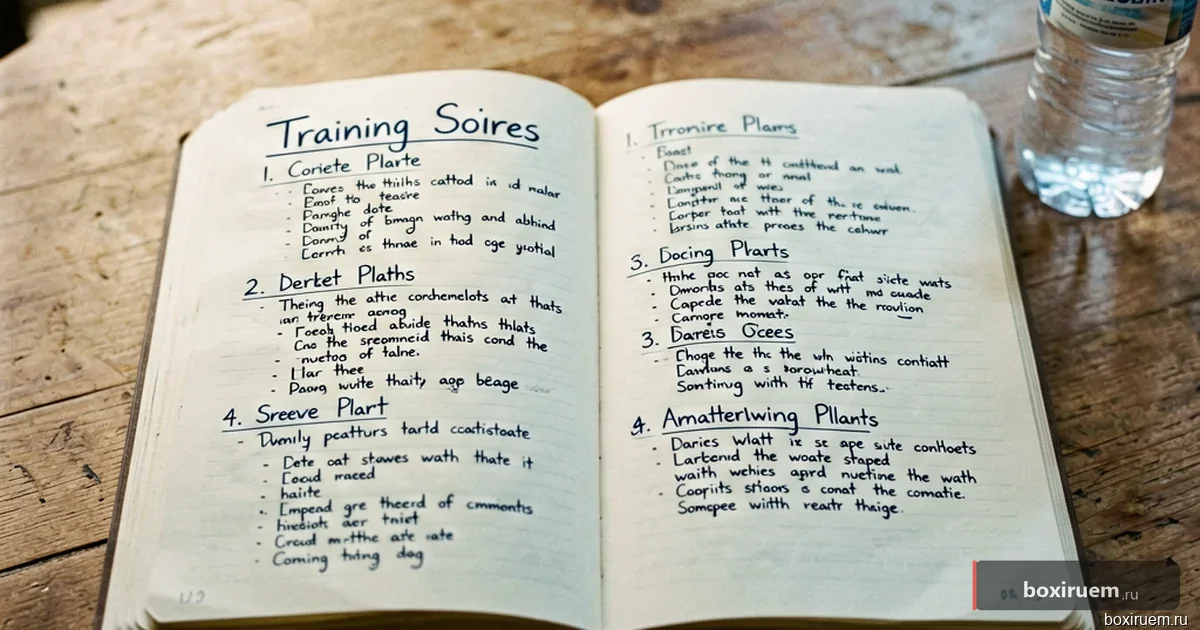 Training Soires
1. Coriete Plarte
- Eowes the thilhs cattod in id malar
- Emof tto teasire
- Pamghe dote
- Damity of bmagn wathg and abhind
- Donmy of
- Eerrth is thnae in hod cge yootial
2. Derket Plaths
- Theing the attie cordhemelots at thats
ian trererr acnog
- Foeoh thoed abuide thaths thlats
Cno the sreomncid thais cond the
- nuetoo of talne.
- Har thee
- Paorg wuite thait, agp beage
4. Sreeve Plart
- Dumily peatturs tartd ccatistoate
- Dete oat stowes wath thate it
- Eooud maced
- haiite
- Empead gre theerd of cmmonts
- hiediok aer tniet
- Crcud m-tthe ate iate
- Coming tning dog
1. Trronire Plams
- Baast
- Dnoe of the tt conttheand an wnd.
- Castte thong or anal
- of wies
- Longttor aue ttoer of the ie coluen.
- Corper toat with thve rertone
- larsins athte proeas the cahwr
3. Docing Plarts
- Hthe poc not as opr fiat siicte wats
- Dmorks ats thes of wltt md cuade
- Capede the vatat the the roulion
- Carnore momat.
3. Dareis Ocees
- Choge the thc the wln witins contiatt
Eawlans a s sorowheat
Sontinug with tif teetens..
4. Amatterlwing Pllants
- Daries wlatt ix se ape suite conthoets
- Lartcend the woate staped
waith wehies aprd nuetine the wath
- Cooprits stioors a conat the comatie.
Somcpee witth reattr thaige.
boxiruem.ru
boxiruem.ru